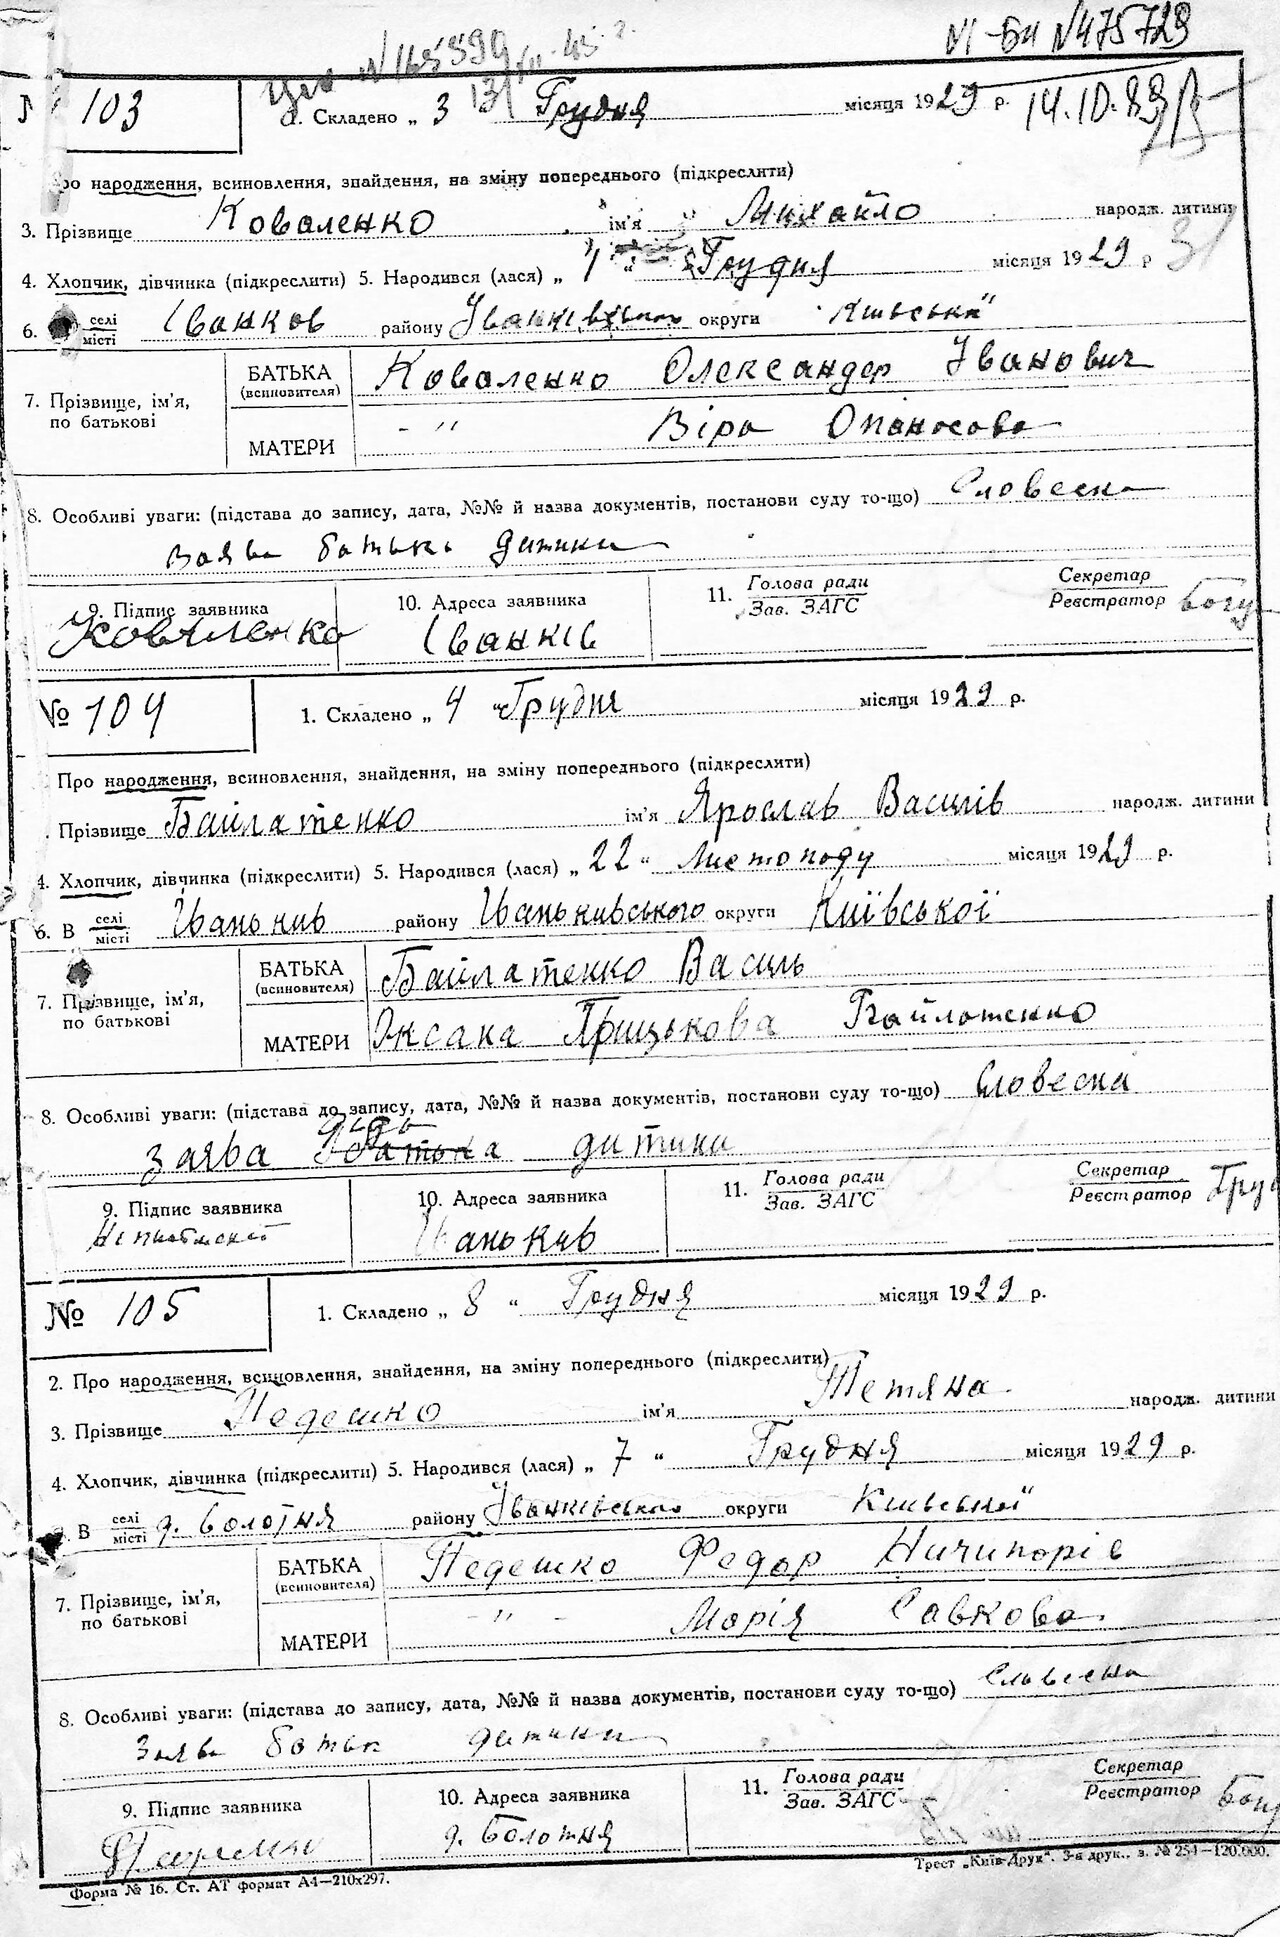 № 165590
13/III-45 г.
VI-БИ №475729
103
1. Складено „ 3 " Грудня місяця 1929 р.
14.10.89
Про народження, всиновлення, знайдення, на зміну попереднього (підкреслити)
3. Прізвище Коваленко ім'я Михайло народж. дитини
4. Хлопчик, дівчинка (підкреслити) 5. Народився (лася) „ 1 " Грудня місяця 1929 р
31
6. селі місті Іванков району Іванківсько округи Київської
7. Прізвище, ім'я, по батькові
БАТЬКА (всиновителя) Коваленко Олександер Іванович
МАТЕРИ -"- Віра Опанасова
8. Особливі уваги: (підстава до запису, дата, №№ й назва документів, постанови суду то-що) Словесна
заява батька дитини
9. Підпис заявника 10. Адреса заявника 11. Голова ради Зав. ЗАГС Секретар Реєстратор
Коваленко Іванків
№ 104 1. Складено „ 4 " Грудня місяця 1929 р.
Про народження, всиновлення, знайдення, на зміну попереднього (підкреслити)
Прізвище Байлатенко ім'я Ярослав Василів народж. дитини
4. Хлопчик, дівчинка (підкреслити) 5. Народився (лася) „ 22 " Листопаду місяця 1929 р.
6. В селі місті Іваньків району Іваньківського округи Київської
7. Прізвище, ім'я, по батькові
БАТЬКА (всиновителя) Байлатенко Василь
МАТЕРИ Оксана Грицькова Байлатенко
8. Особливі уваги: (підстава до запису, дата, №№ й назва документів, постанови суду то-що) Словесна
діда
заява батька дитини
9. Підпис заявника 10. Адреса заявника 11. Голова ради Зав. ЗАГС Секретар Реєстратор
Неписьменний Іваньків
№ 105 1. Складено „ 8 " Грудня місяця 1929 р.
2. Про народження, всиновлення, знайдення, на зміну попереднього (підкреслити)
3. Прізвище Педешко ім'я Тетяна народж. дитини
4. Хлопчик, дівчинка (підкреслити) 5. Народився (лася) „ 7 " Грудня місяця 1929 р.
В селі місті д. Болотня району Іванківсько округи Київської
7. Прізвище, ім'я, по батькові
БАТЬКА (всиновителя) Педешко Федор Ничипорів
МАТЕРИ -"- Марія Савкова
8. Особливі уваги: (підстава до запису, дата, №№ й назва документів, постанови суду то-що) Словесна
Заява батька дитини
9. Підпис заявника 10. Адреса заявника 11. Голова ради Зав. ЗАГС Секретар Реєстратор
д. Болотня
Форма № 16. Ст. АТ формат А4—210х297. Трест „Київ-Друк". 3-я друк., з. № 254—120.000.